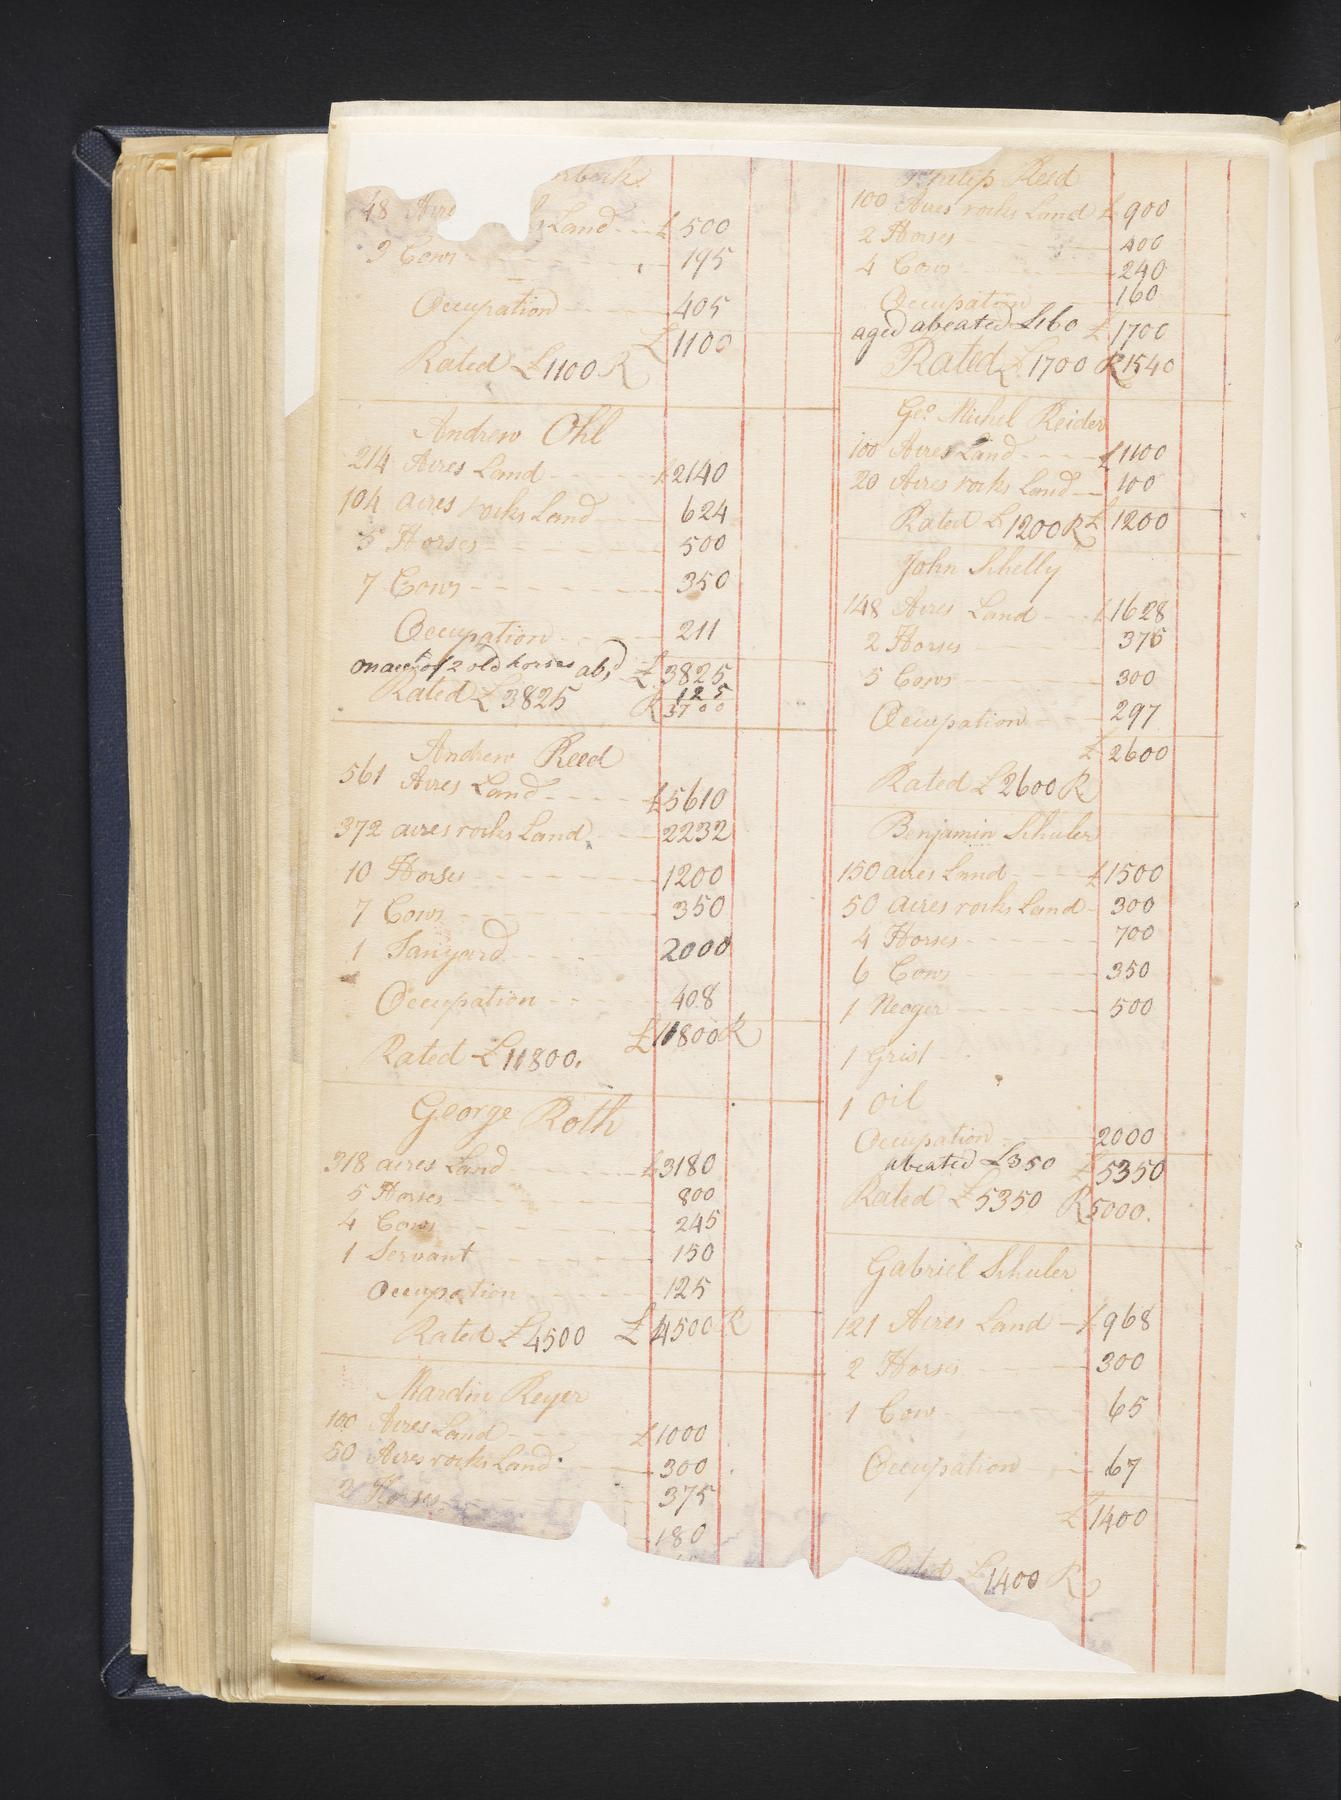 48 Acre Land £ 500
3 Cows 195
Occupation 405
£ 1100
Rated £1100 R
Andrew Ohl
214 Acres Land £2140
104 acres rocks Land 624
5 Horses 500
7 Cows 350
Occupation 211
on acct of 2 old horses abd £ 3825
125
Rated £3825 R 3700
Andrew Reed
561 Acres Land £5610
372 acres rocks Land 2232
10 Horses 1200
7 Cows 350
1 Tanyard 2000
Occupation 408
£11800 R
Rated £11800.
George Roth
318 acres Land £3180
5 Horses 800
4 Cows 245
1 Servant 150
Occupation 125
Rated £4500 £4500 R
Mardin Reyer
100 Acres Land £1000
50 Acres rocks Land 300
2 Horses 375
180
Philip Reed
100 Acres rocks Land £ 900
2 Horses 400
4 Cows 240
Occupation 160
aged abeated £160 £ 1700
Rated £1700 R1540
Geo. Michel Reider
100 Acres Land £1100
20 Acres rocks Land 100
Rated £1200 R £ 1200
John Schelly
148 Acres Land £1628
2 Horses 375
5 Cows 300
Occupation 297
£ 2600
Rated £2600 R
Benjamin Schuler
150 acres Land £1500
50 acres rocks Land 300
4 Horses 700
6 Cows 350
1 Neoger 500
1 Grist
1 Oil
Occupation 2000
abeated £350 £5350
Rated £5350 R5000.
Gabriel Schuler
121 Acres Land £968
2 Horses 300
1 Cow 65
Occupation 67
£1400
Rated £1400 R